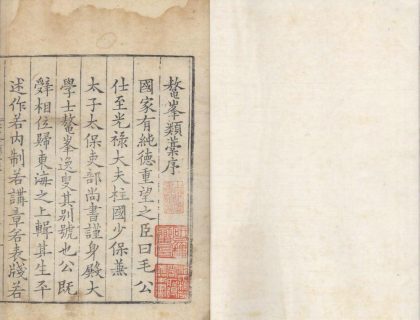 鼇峯類藁序
國家有純德重望之臣曰毛公
仕至光祿大夫柱國少保兼
太子太保吏部尚書謹身殿大
學士鼇峯逸叟其別號也公旣
辭相位歸東海之上輯其生平
述作若內制若講章若表牋若